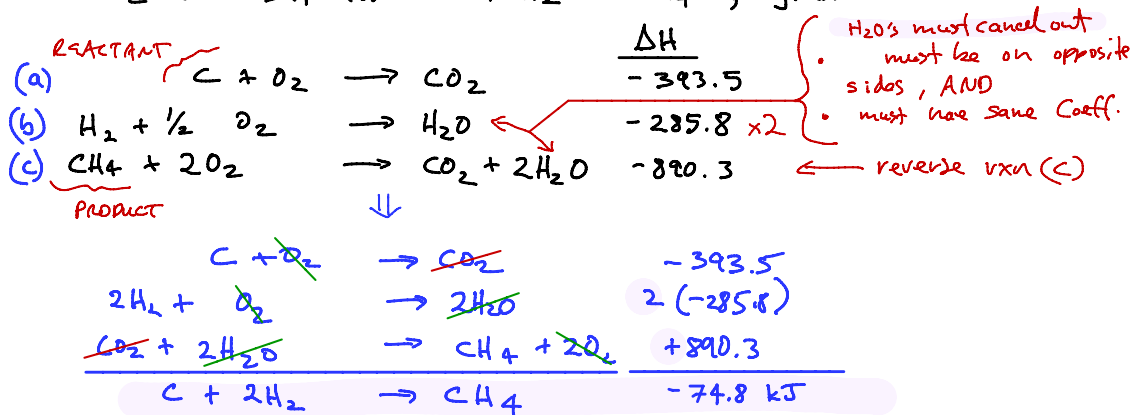 ΔH
REACTANT
(a) C + O₂ → CO₂ -393.5
(b) H₂ + ½ O₂ → H₂O -285.8 x2
(c) CH4 + 2O₂ → CO₂ + 2H₂O -890.3 ← reverse rxn (c)
PRODUCT
H₂O's must cancel out
• must be on opposite
sides, AND
• must have same Coeff.
⇓
C + O₂ → CO₂ -393.5
2H₂ + O₂ → 2H₂O 2(-285.8)
CO₂ + 2H₂O → CH4 + 2O₂ +890.3
C + 2H₂ → CH4 -74.8 kJ